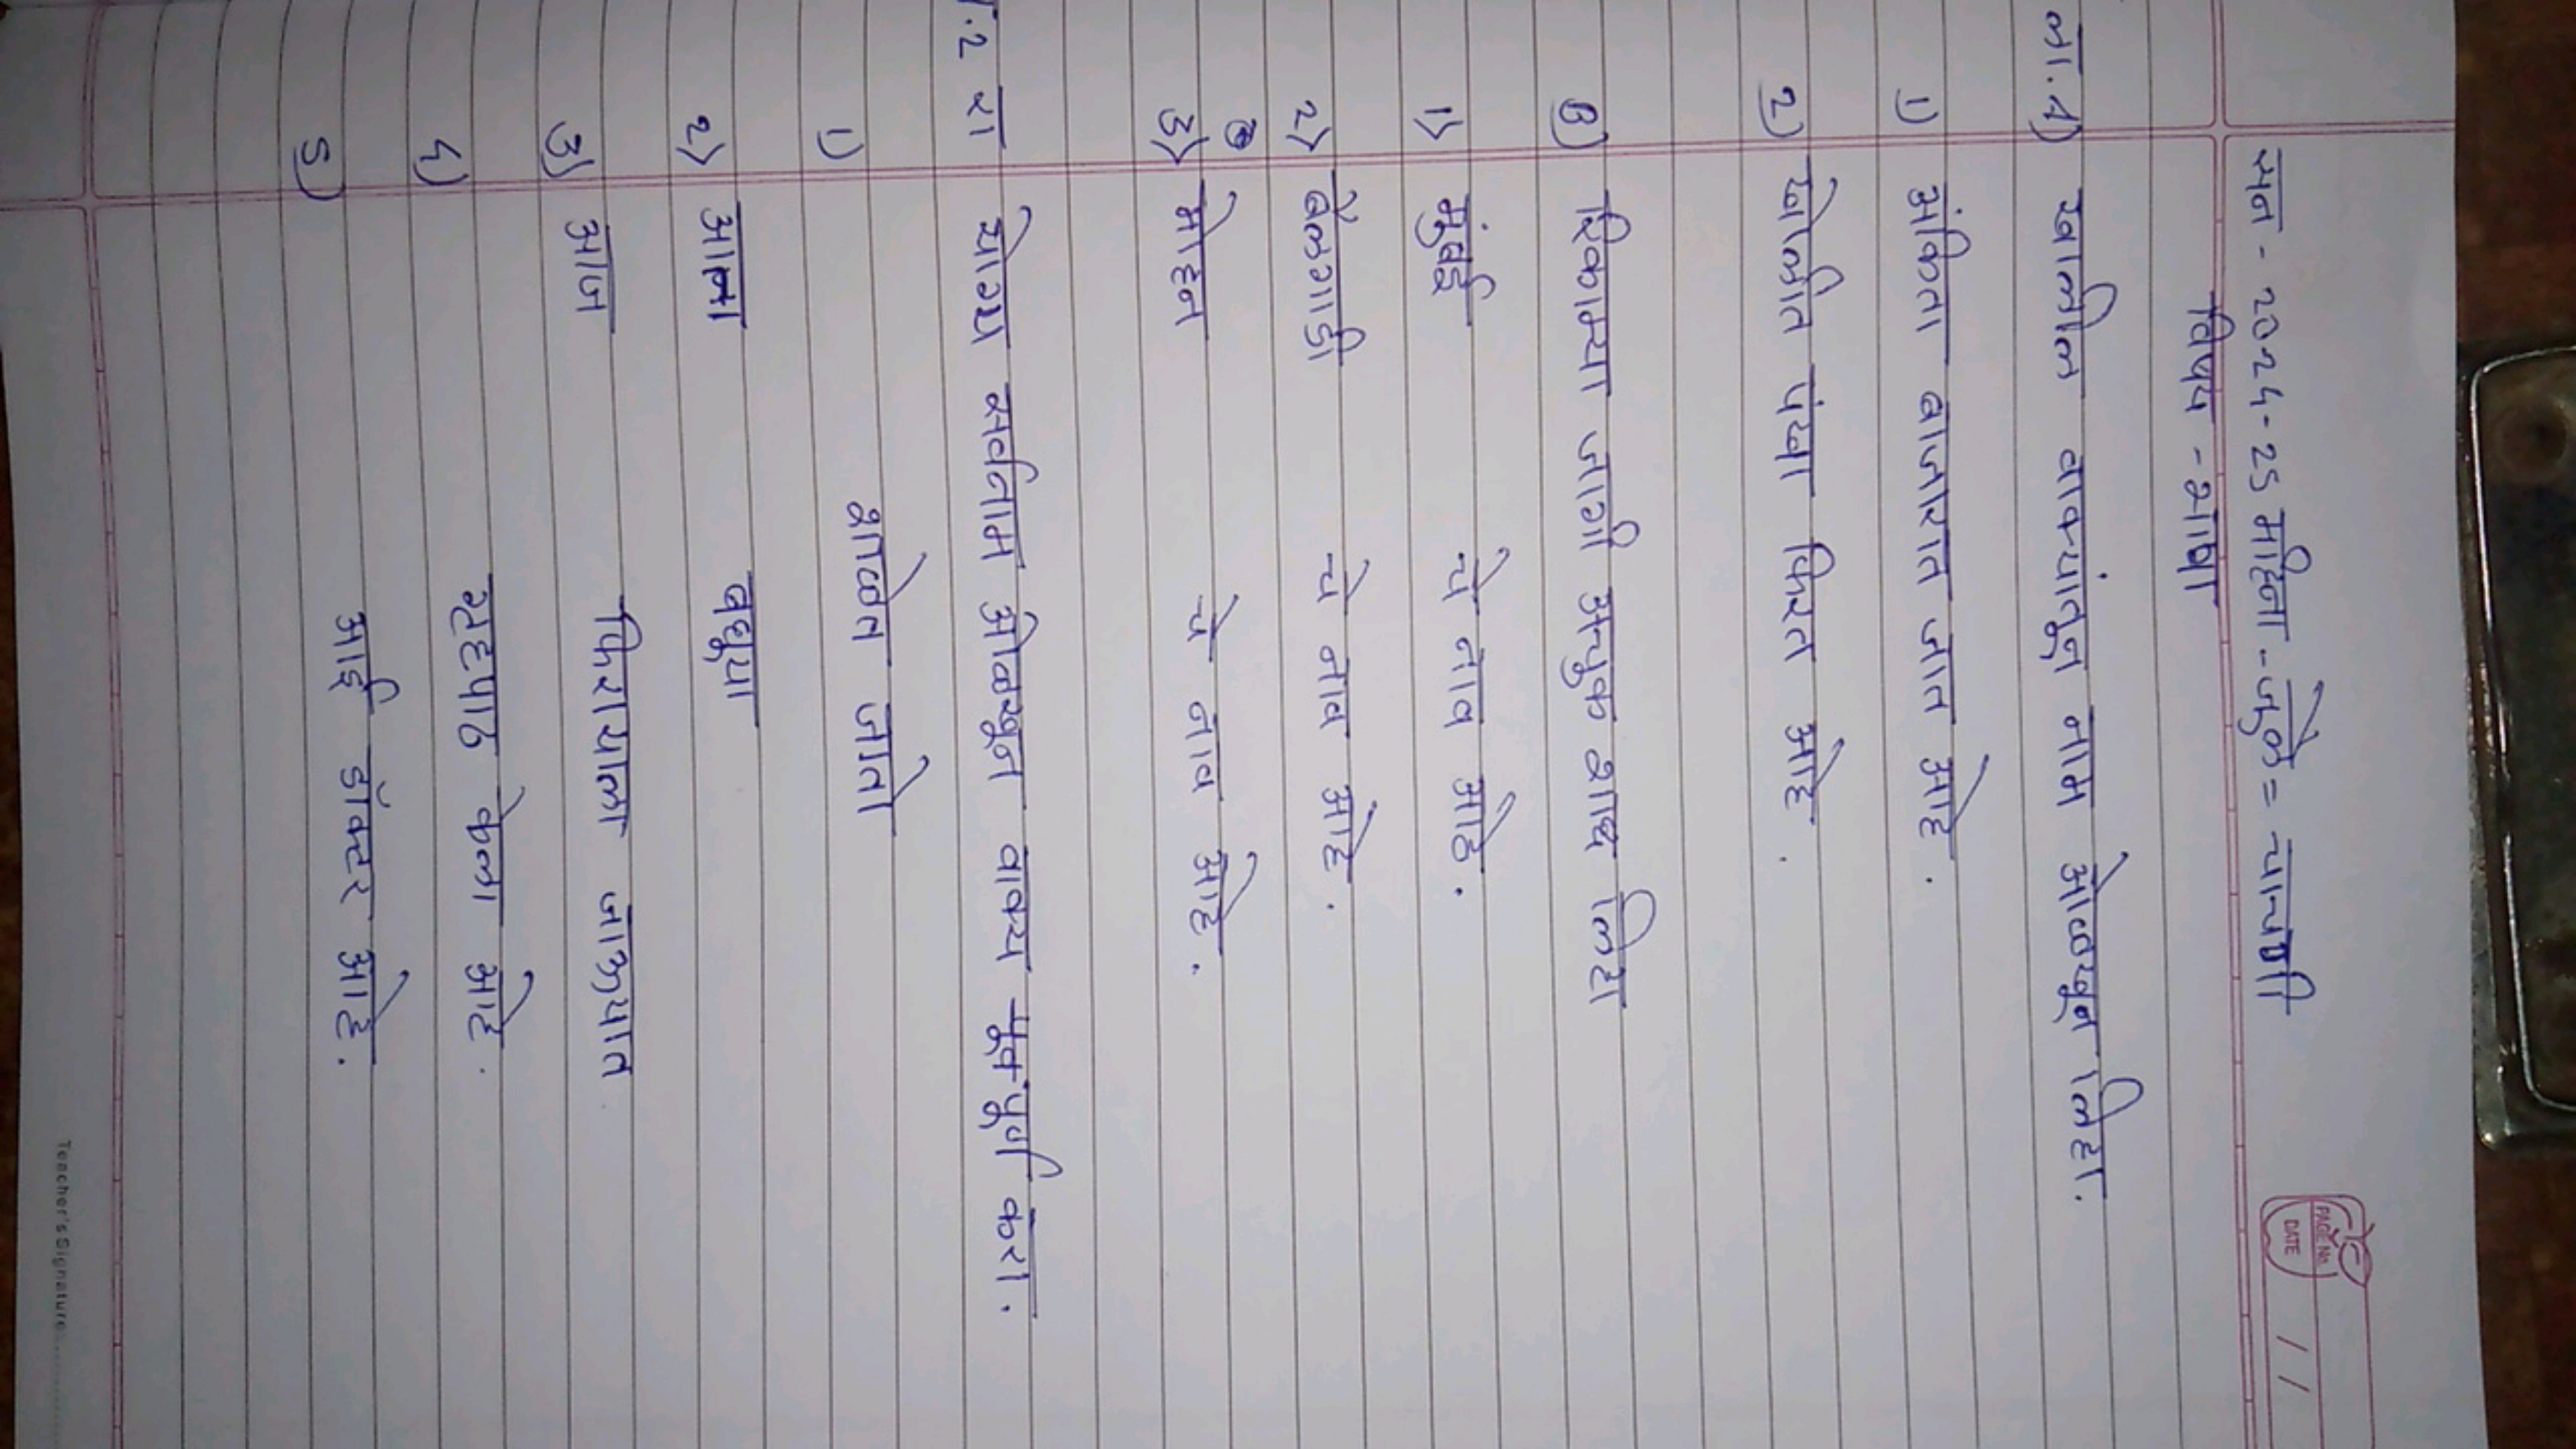 PAGE No.
DATE / /
सन - 2024-25 महिना - जुलै = चाचणी
विषय - भाषा
ना. A) खालील वाक्यांतुन नाम ओळखून लिहा.
1) अंकिता बाजारात जात आहे.
2) खोलीत पंखा फिरत आहे.
B) रिकाम्या जागी अचुक शब्द लिहा
1) मुंबई चे नाव आहे.
2) बेलगाडी चे नाव आहे.
3) मोहन चे नाव आहे.
.2 रा योग्य सर्वनाम ओळखून वाक्य पूर्ण करा.
1) शाळेत जातो
2) आला बघुया
3) आज फिरायला जाऊयात
4) गृहपाठ केला आहे.
5) आई डॉक्टर आहे.
Teacher's Signature